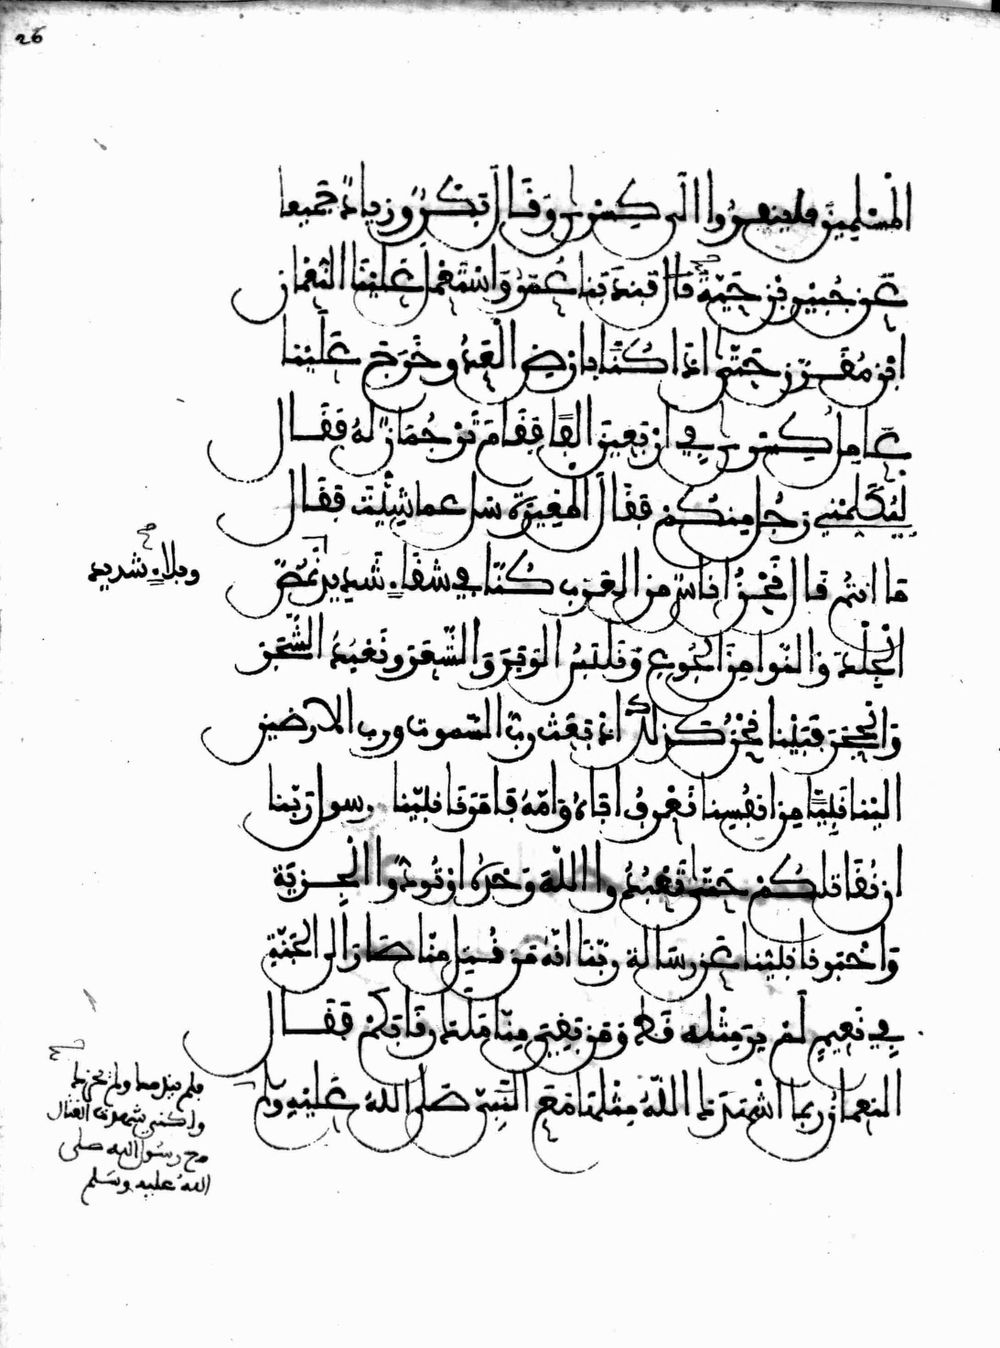 26
المسلمين فلينفروا الى كسرى وقال بكر وزياد جميعا
عن جبير بن حية قال فندبنا عمر واستعمل علينا النعمان
ابن مقرن حتى اذا كنا بارض العدو وخرج علينا
عامل كسرى في اربعين الفا فقام ترجمان له فقال
ليكلمني رجل منكم فقال المغيرة سل عما شئت فقال
ما انتم قال نحن اناس من العرب كنا في شقاء شديد نمص
وبلاء شديد
الجلد والنوا من الجوع ونلبس الوبر والشعر ونعبد الشجر
والحجر فبينا نحن كذلك اذ بعث رب السموت ورب الارضين
الينا نبيا من انفسنا نعرف اباه وامه فامرنا نبينا رسول ربنا
ان نقاتلكم حتى تعبدوا الله وحده او تودوا الجزية
واخبرنا نبينا عن رسالة ربنا انه من قتل منا صار الى الجنة
في نعيم لم ير مثله قط ومن بقي منا ملك رقابكم فقال
النعمان ربما اشهدك الله مثلها مع النبي صلى الله عليه ولم
فلم يندمك ولم يخزك
ولكني شهدت القتال
مع رسول الله صلى
الله عليه وسلم